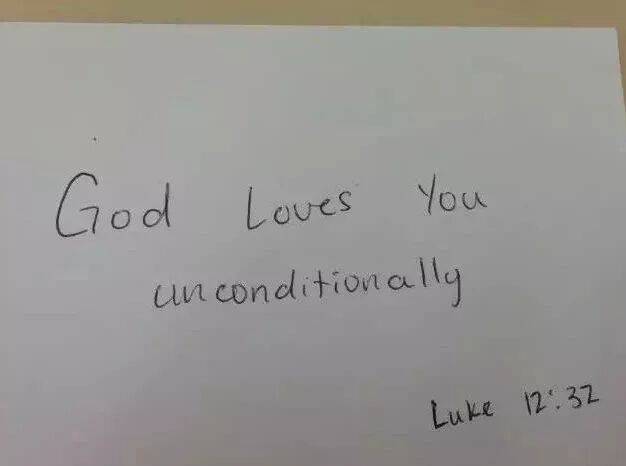 God Loves You
unconditionally
Luke 12:32